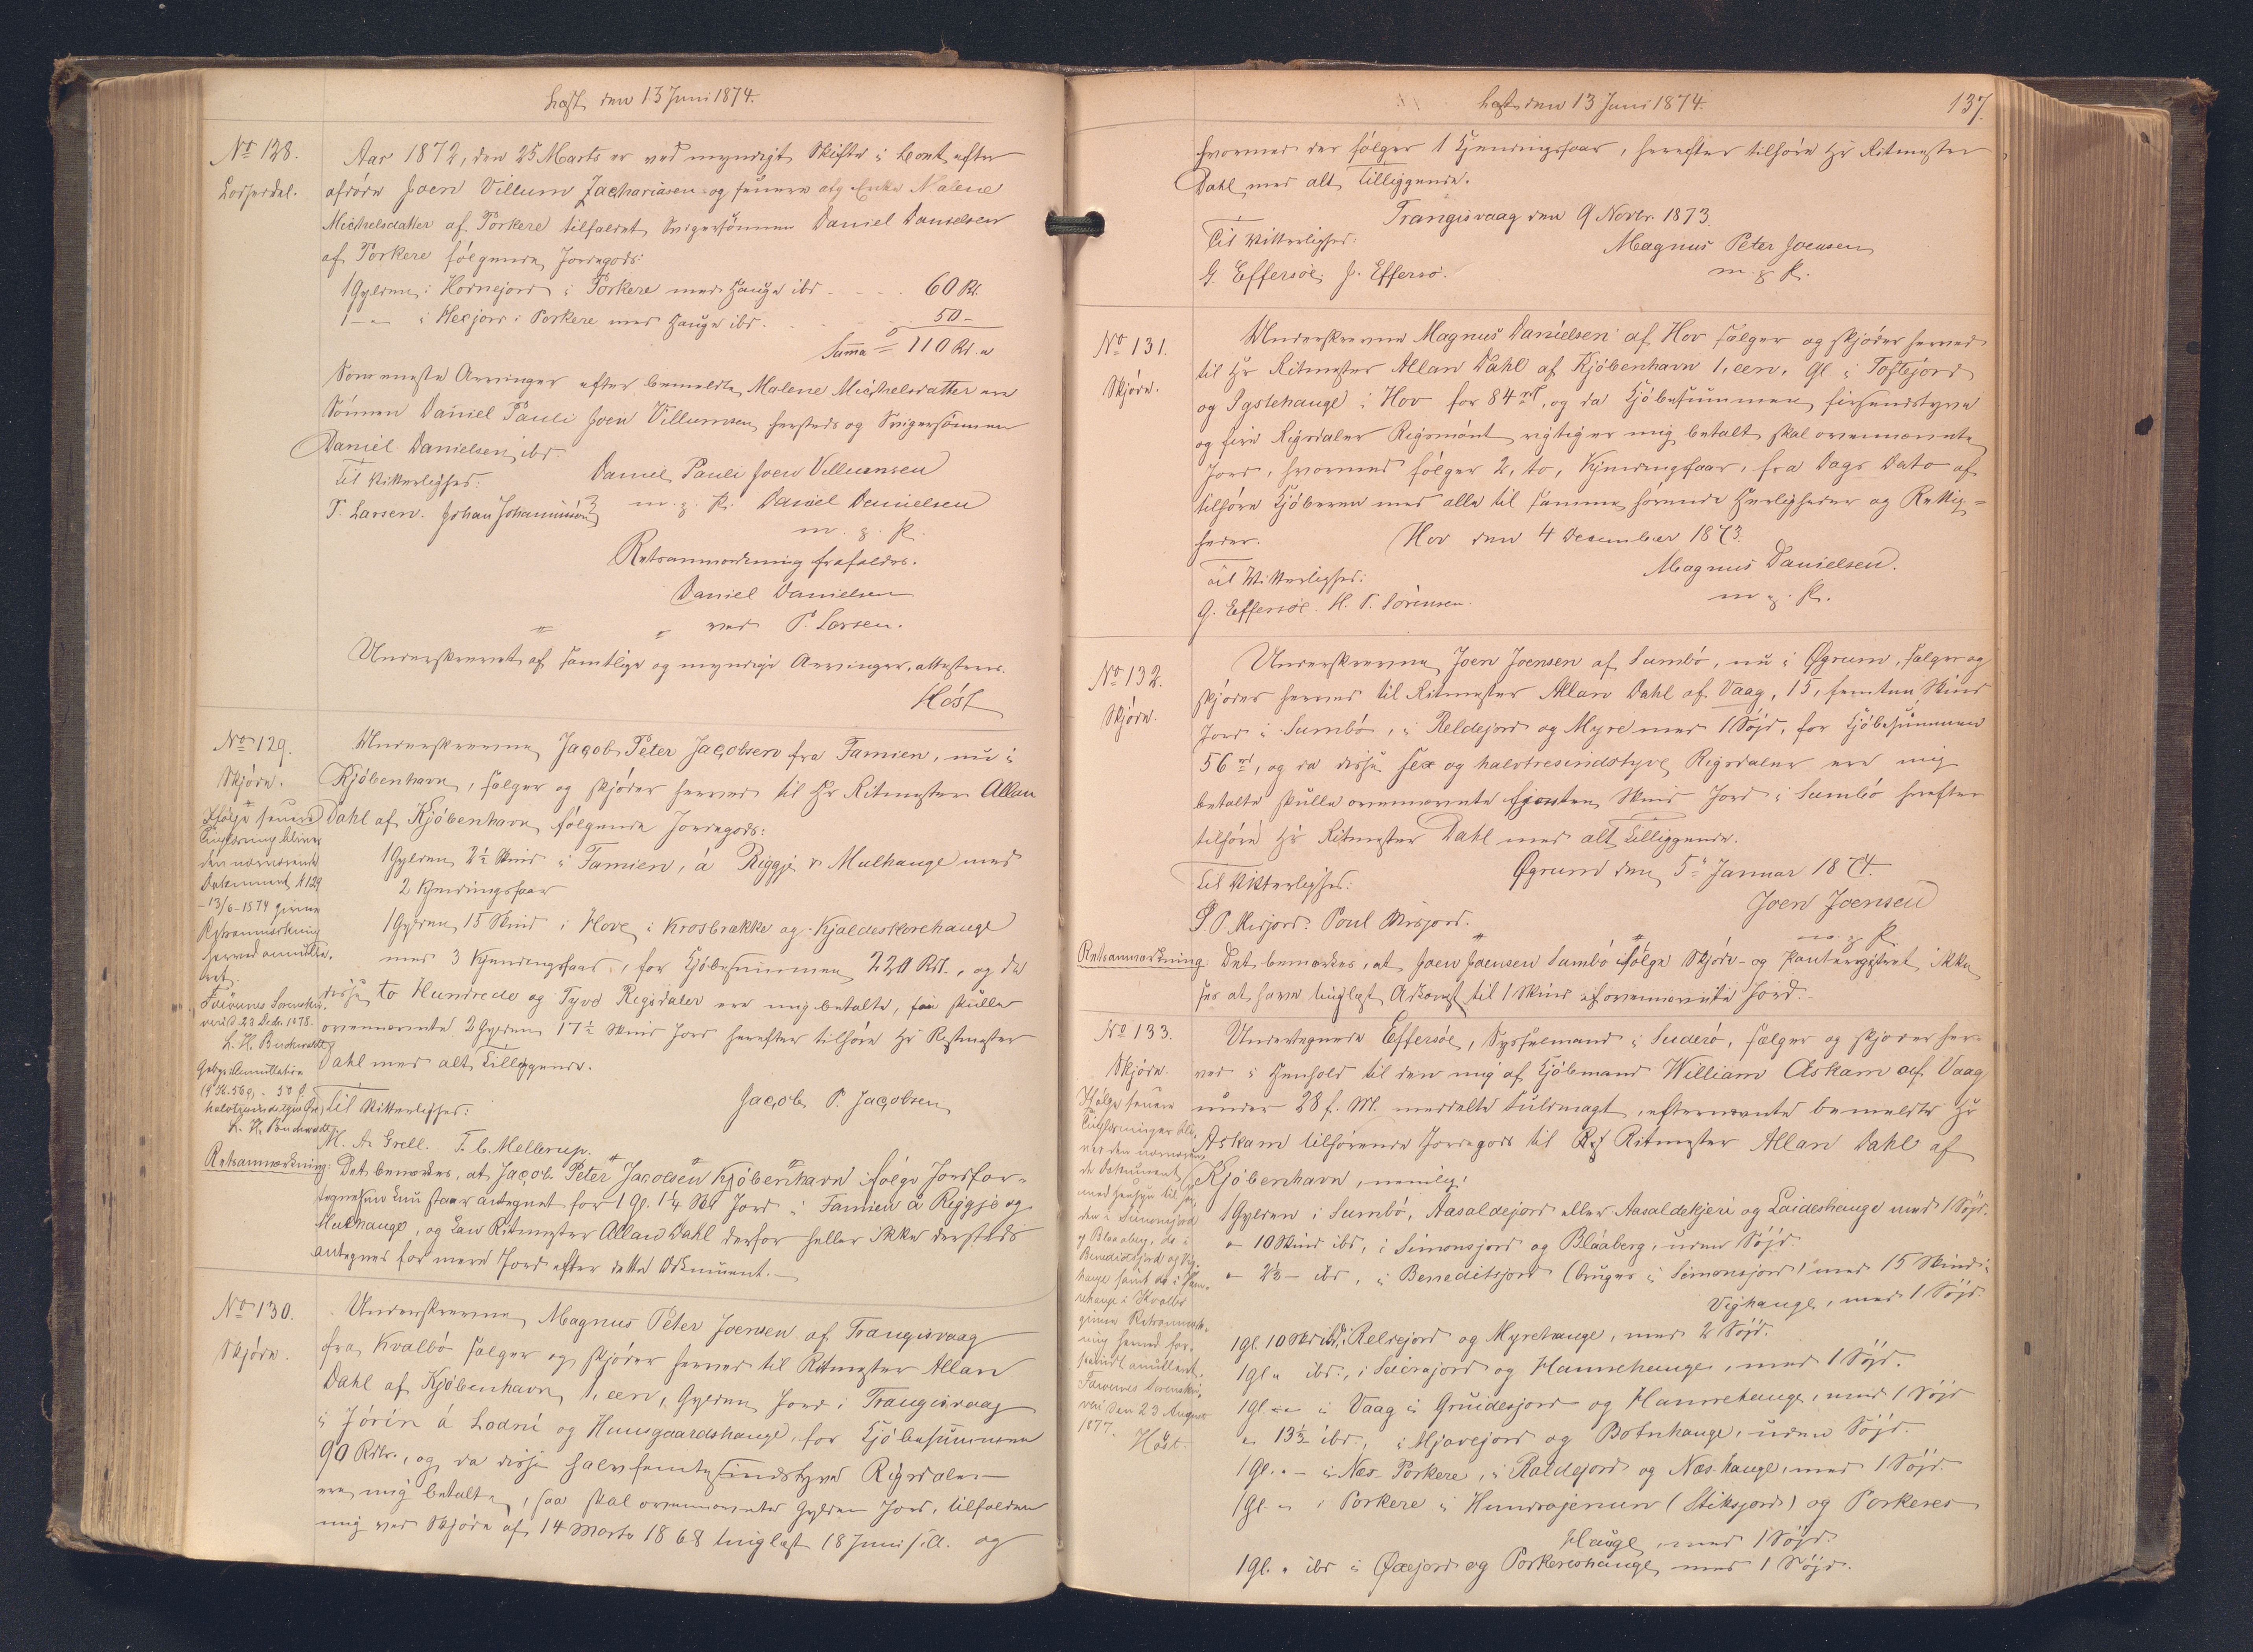 Læst den 13 Juni 1874.
No 128.
Aar 1872, den 25 Marts er ved myndigt Skifte i Boet efter
afdøde Joen Villum Zachariasen og senere afg Enke Malene
Michelsdatter af Porkere tilfaldet Svigersønnen Daniel Danielsen
af Porkere følgende Jordegods:
1 Gylden i Hornejord i Porkere med Hauge ibd. 60 Rd.
1 — " i Hexjord i Porkere med Hauge ibd. 50 -
Summa = 110 Rd.
Som eneste Arvinger efter bemeldte Malene Michelsdatter ere
Sønnen Daniel Pauli Joen Villumsen hersteds og Svigersønnen
Daniel Danielsen ibd.
Til Vitterlighed:
Daniel Pauli Joen Villumsen
T. Larsen. Johan Johannesen
m. g. P. Daniel Danielsen
m. g. P.
Retsanmærkning frafaldes.
Daniel Danielsen
ved P. Larsen.
Underskrevet af samtlige og myndige Arvinger, attesteres.
Høst
No 129.
Skjøde.
Ifølge senere
Tinglysning bliver
den nærværende
Dokument N 129
- 13/6 - 1874 givne
Retsanmærkning
herved annulle-
ret.
Færøernes Sorenskri-
veri d 23 Decbr. 1878.
L. H. Buchwaldt
L. H. Buchwaldt
Underskrevne Jacob Peter Jacobsen fra Famien, nu i
Kjøbenhavn, sælger og skjøder herved til Hr Ritmester Allan
Dahl af Kjøbenhavn følgende Jordegods:
1 Gylden 2½ Skind i Famien, á Riggje v. Mulhauge med
2 Kjendingsfaar
1 Gylden 15 Skind i Hove i Krosbrække og Kjaldeskorehauge
med 3 Kjendingsfaar, for Kjøbesummen 220 Rdl., og da
disse to Hundrede og Tyve Rigsdaler ere mig betalte, saa skulle
ovennævnte 2 Gylden 17½ Skind Jord herefter tilhøre Hr Ritmester
Dahl med alt Tilliggende.
Jacob P. Jacobsen
Til Vitterlighed:
M. A. Grell. F. C. Mellerup.
Retsanmærkning: Det bemærkes, at Jacob Peter Jacobsen Kjøbenhavn ifølge Jordfor-
tegnelsen kun staar antegnet for 1 Gl. 1¼ Skd Jord i Famien á Riggje og
Mulhauge, og kan Ritmester Allan Dahl derfor heller ikke dersteds
antegnes for mere Jord efter dette Dokument. —
No 130.
Skjøde.
Underskrevne Magnus Peter Joensen af Trangisvaag
fra Kvalbø sælger og skjøder herved til Ritmester Allan
Dahl af Kjøbenhavn 1, een, Gylden Jord i Trangisvaag
i Jórín á Lodni og Huusgaardshauge, for Kjøbesummen
90 Rdlr., og da disse halvfemtesindstyve Rigsdaler
ere mig betalte, saa skal ovennævnte Gylden Jord, tilfalden
mig ved Skjøde af 14 Marts 1868 tinglæst 18 Juni s. A. og
Læst den 13 Juni 1874.
137.
hvormed der følger 1 Kjendingsfaar, herefter tilhøre Hr Ritmester
Dahl med alt Tilliggende.
Trangisvaag den 9 Novbr. 1873.
Til Vitterlighed:
Magnus Peter Joensen
G. Effersøe. J. Effersø.
m. g. P.
No 131.
Skjøde.
Underskrevne Magnus Danielsen af Hov sælger og skjøder herved
til Hr Ritmester Allan Dahl af Kjøbenhavn 1, een, Gl. i Toftejord
og Pastehauge i Hov for 84 rd, og da Kjøbesummen firsindstyve
og fire Rigsdaler Rigsmønt rigtig er mig betalt skal ovennævnte
Jord, hvormed følger 2, to, Kjendingsfaar, fra Dags Dato af
tilhøre Kjøberen med alle til samme hørende Herligheder og Rettig-
heder.
Hov den 4 December 1873.
Til Vitterlighed:
Magnus Danielsen.
G. Effersøe. H. P. Sørensen.
m. g. P.
No 132.
Skjøde.
Underskrevne Joen Joensen af Sumbø, nu i Øgrum, sælger og
skjøder herved til Ritmester Allan Dahl af Vaag, 15, femten Skind
Jord i Sumbø, i Reldejord og Myre med 1 Søyd, for Kjøbesummen
56 rd, og da disse sex og halvtresindstyve Rigsdaler ere mig
betalte skulle ovennævnte femten Skind Jord i Sumbø herefter
tilhøre Hr Ritmester Dahl med alt Tilliggende.
Øgrum den 5te Januar 1874.
Til Vitterlighed:
Joen Joensen
P. Misjord. Poul Misjord.
m. g. P.
Retsanmærkning: Det bemærkes, at Joen Joensen Sumbø ifølge Skjøde- og Panteregistret ikke
ses at have tinglæst Adkomst til 1 Skind af ovennævnte Jord. —
No 133.
Skjøde.
Ifølge senere
Tinglysninger bli-
ver den nærværen-
de Dokument
med Hensyn til Jor-
den i Simonsjord
og Blaaberg, do i
Benedictsjord og Vig-
hauge samt do i Ham-
rehauge i Kvalbø
givne Retsanmærk-
ning herved for-
saavidt annulleret.
Færøernes Sorenskri-
veri den 23 August
1877.
Høst.
Undertegnede Effersøe, Sysselmand i Suderø, sælger og skjøder her-
ved i Henhold til den mig af Kjøbmand William Askam af Vaag
under 28 f. M. meddelte Fuldmagt, efternævnte bemeldte Hr
Askam tilhørende Jordegods til Ritmester Allan Dahl af
Kjøbenhavn, nemlig:
1 Gylden i Sumbø, Aasaldejord eller Aasaldekjeri og Laideshauge med 1 Søyd.
" 10 Skind ibd, i Simonsjord og Bláaberg, uden Søyd.
" 2½ — ibd, i Beneditsjord (bruges i Simonsjord) med 15 Skind i
Vighauge, med 1 Søyd.
1 Gl. 10 Skd ibd, i Reldejord og Myrehauge, med 2 Søyd.
1 Gl " ibd., i Seirajord og Hamrehauge, med 1 Søyd.
1 Gl " i Vaag i Gruidesjord og Hamrehauge, med 1 Søyd
" 13½ ibd., i Mjavejord og Botnhauge, uden Søyd.
1 Gl. " i Næs-Porkere, i Raldejord og Næs hauge, med 1 Søyd.
1 Gl. " i Porkere i Hundrajenun (Stiksjord) og Porkeres
Hauge, med 1 Søyd.
1 Gl. " ibd i Øxejord og Porkereshauge, med 1 Søyd.